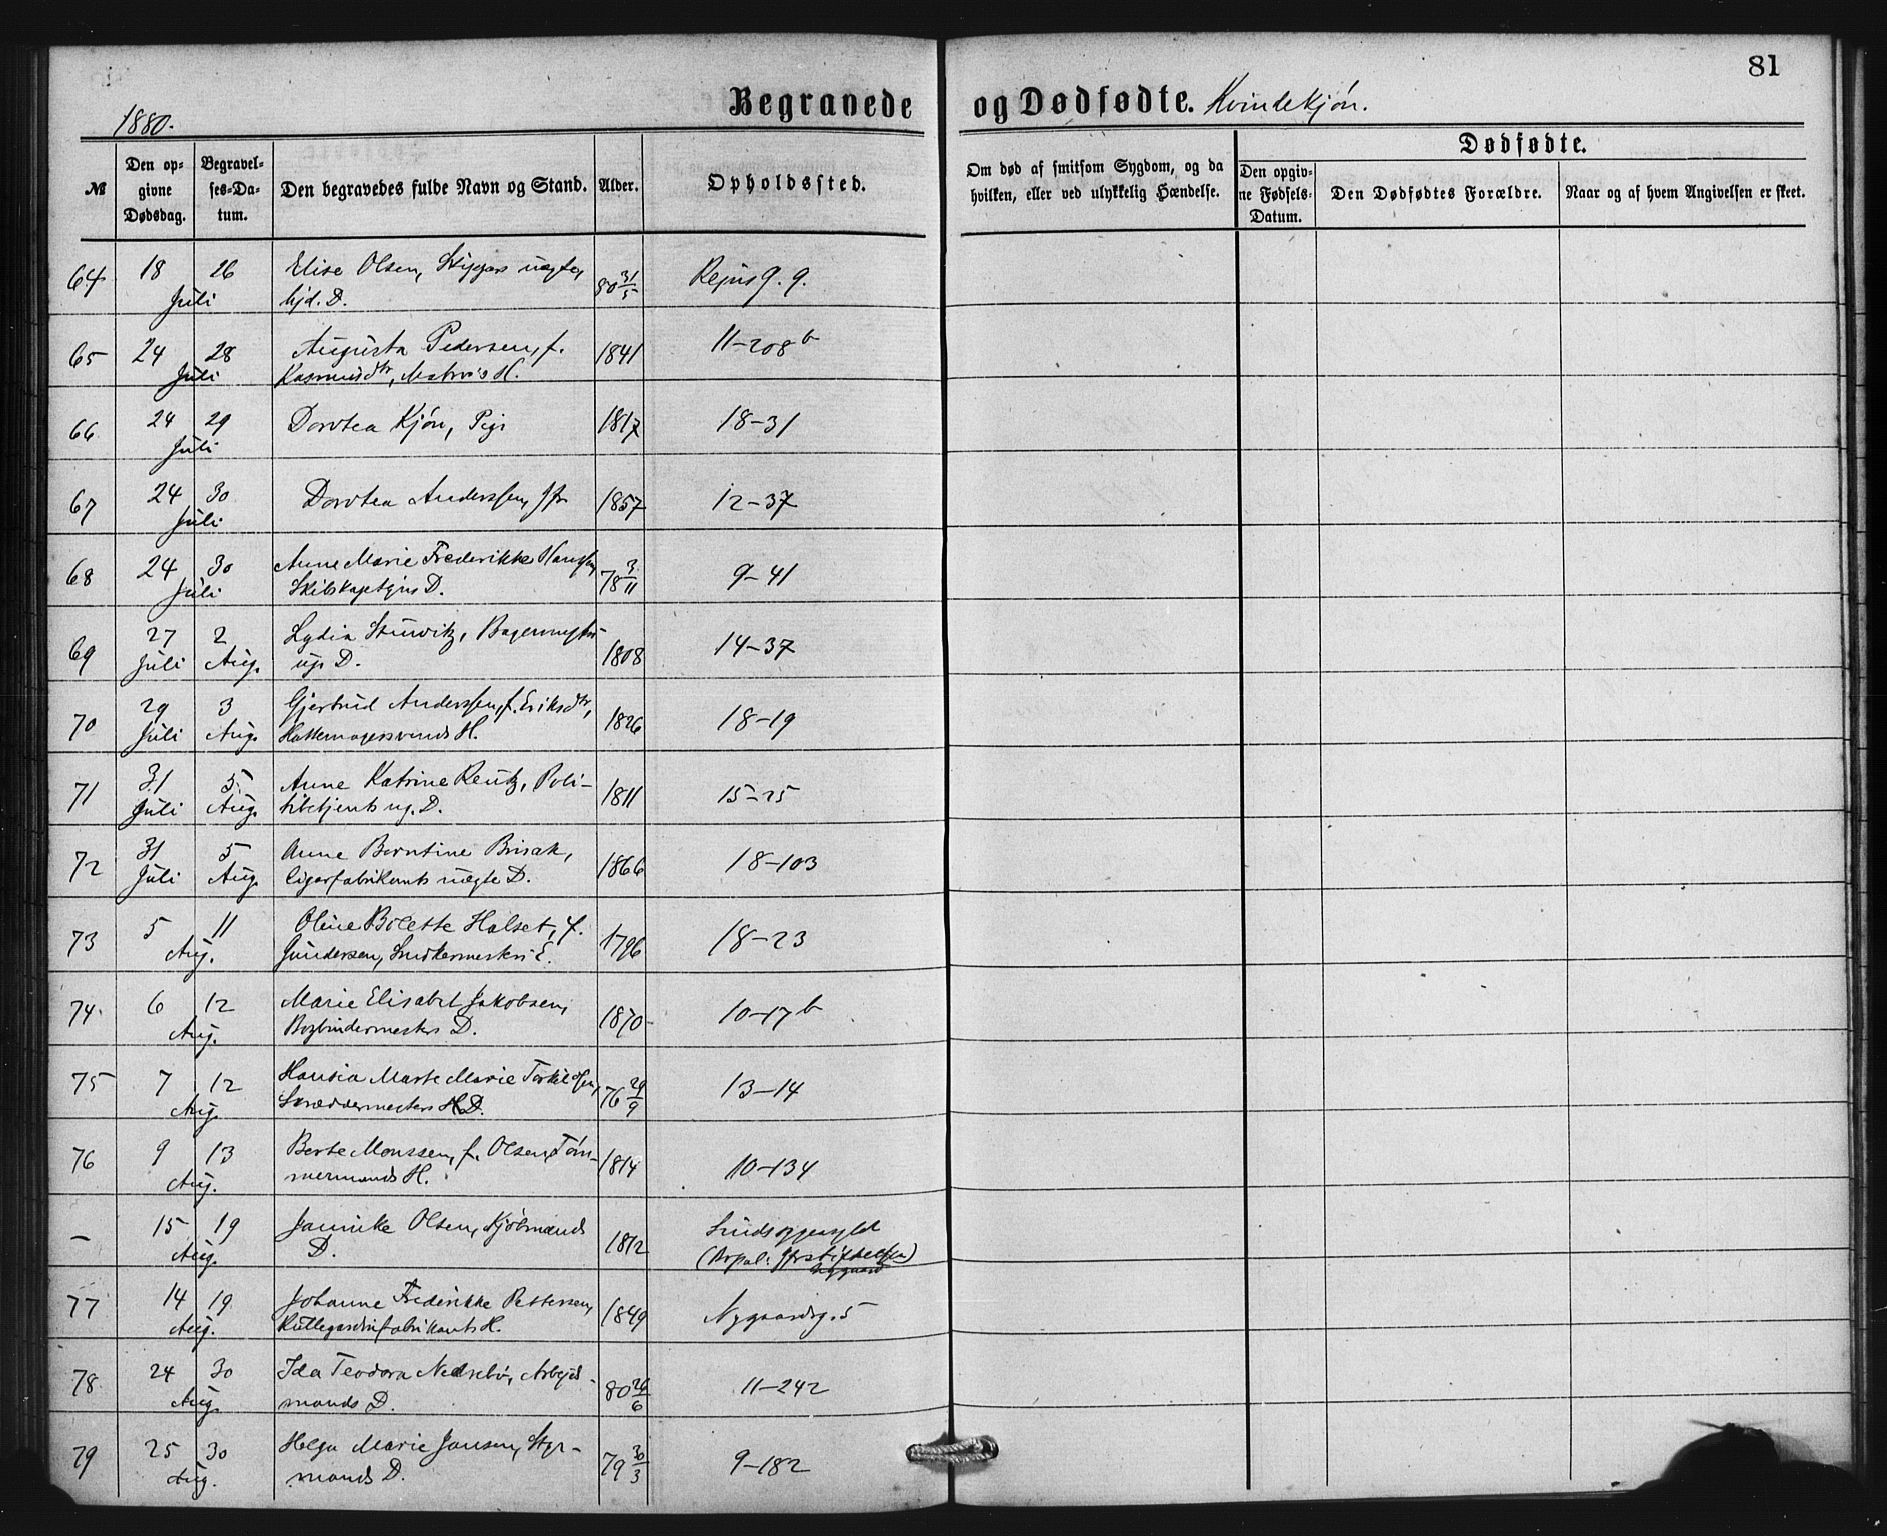 81
1880.
Begravede og Dødfødte. Kvindekjøn.
№
Den opgivne Dødsdag.
Begravelses-Datum.
Den begravedes fulde Navn og Stand.
Alder.
Opholdssted.
Om død af smitsom Sygdom, og da hvilken, eller ved ulykkelig Hændelse.
Dødfødte.
Den opgivne Fødsels-Datum.
Den Dødfødtes Forældre.
Naar og af hvem Angivelsen er skeet.
64 18 26 Elise Olsen, Skippers uægte,
Juli D. 80 31/5
65 24 28 Augusta Pedersen, f. 1841 11-208 b
Juli Rasmusdtr, H.
66 24 29 Dorotea Kjøn, Pige 1817 18-31
Juli
67 24 30 Dorotea Anderssen, Jfr 1857 12-37
Juli
68 24 30 Anne Marie Frederikke Hanssen, 78 3/11 9-41
Juli Skibskaptejns D.
69 27 2 Lydia 1808 14-37
Juli Aug. ug. D.
70 29 3 Gjertrud Anderssen, f. Eriksdtr, 1826 18-19
Juli Aug. Hattemagersvends H.
71 31 5 Anne Katrine Reutz, Poli- 1811 15-25
Juli Aug. titbetjents ug. D.
72 31 5 Anne Berntine Brisak, 1866 18-103
Juli Aug. Cigarfabrikants uægte D.
73 5 11 Oline Bolette Halset, f. 1796 18-23
Aug. Gundersen, Snedkermesters E.
74 6 12 Marie Elisabet Jakobsen, 1870 10-17 b
Aug. Bogbindermesters D.
75 7 12 Hansia Marte Marie Torkildsen, 76 29/9 13-14
Aug. Skræddermesters D.
76 9 13 Berte Monssen, f. Olsen, Tøm- 1814 10-134
Aug. mermands H.
– 15 19 Jannike Olsen, Kjøbmands 1812
Aug. D.
77 14 19 Johanne Frederikke Pettersen, 1849 Nygaardsg. 5
Aug. Rullegardinfabrikants H.
78 24 30 Ida Teodora Nedrebø, Arbejds- 80 26/6 11-242
Aug. mands D.
79 25 30 Helga Marie Jansen, Styr- 79 30/3 9-182
Aug. mands D.